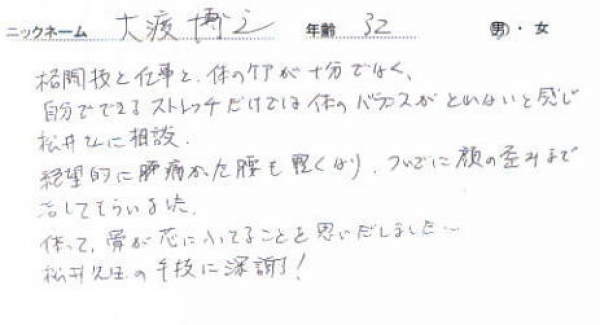 ニックネーム 大渡博之 年齢 32 男・女
格闘技と仕事と、体のケアが十分ではなく、
自分でできるストレッチだけでは体のバランスがとれないと感じ
松井さんに相談。
絶望的に 腰も軽くなり、ついでに顔の歪みまで
治してもらいました。
体って、骨が芯に入ってることを思いだしました…
松井先生の手技に深謝!